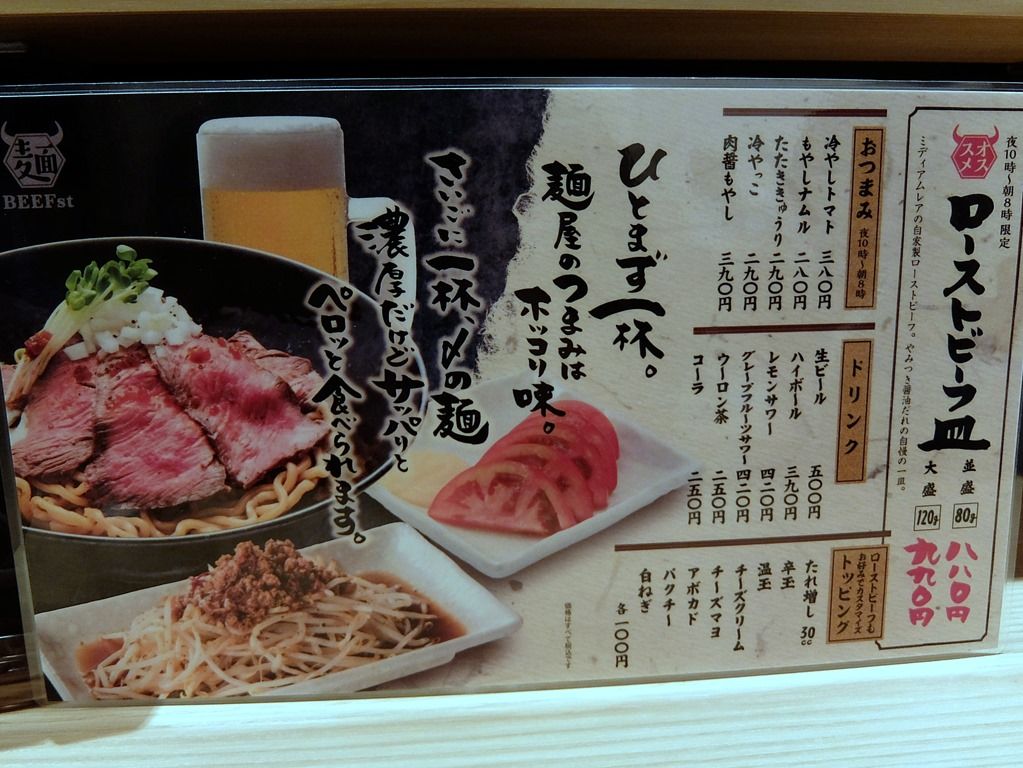 夜10時〜朝8時限定
オススメ
ローストビーフ皿
並盛 80g 八八〇円
大盛 120g 九九〇円
ミディアムレアの自家製ローストビーフ。やみつき醤油だれの自慢の一皿。
おつまみ 夜10時〜朝8時
冷やしトマト 三八〇円
もやしナムル 二八〇円
たたききゅうり 二九〇円
冷やっこ 二九〇円
肉醤もやし 三九〇円
ドリンク
生ビール 五〇〇円
ハイボール 三九〇円
レモンサワー 四二〇円
グレープフルーツサワー 四二〇円
ウーロン茶 二五〇円
コーラ 二五〇円
ローストビーフも
お好みでカスタマイズ
トッピング
たれ増し 30cc
辛玉
温玉
チーズクリーム
チーズマヨ
アボカド
パクチー
白ねぎ
各一〇〇円
価格はすべて税込です
ひとまず一杯。
麺屋のつまみは
ホッコリ味。
さいごに一杯、〆の麺
濃厚だけどサッパリと
ペロッと食べられます。
麺
BEEFst